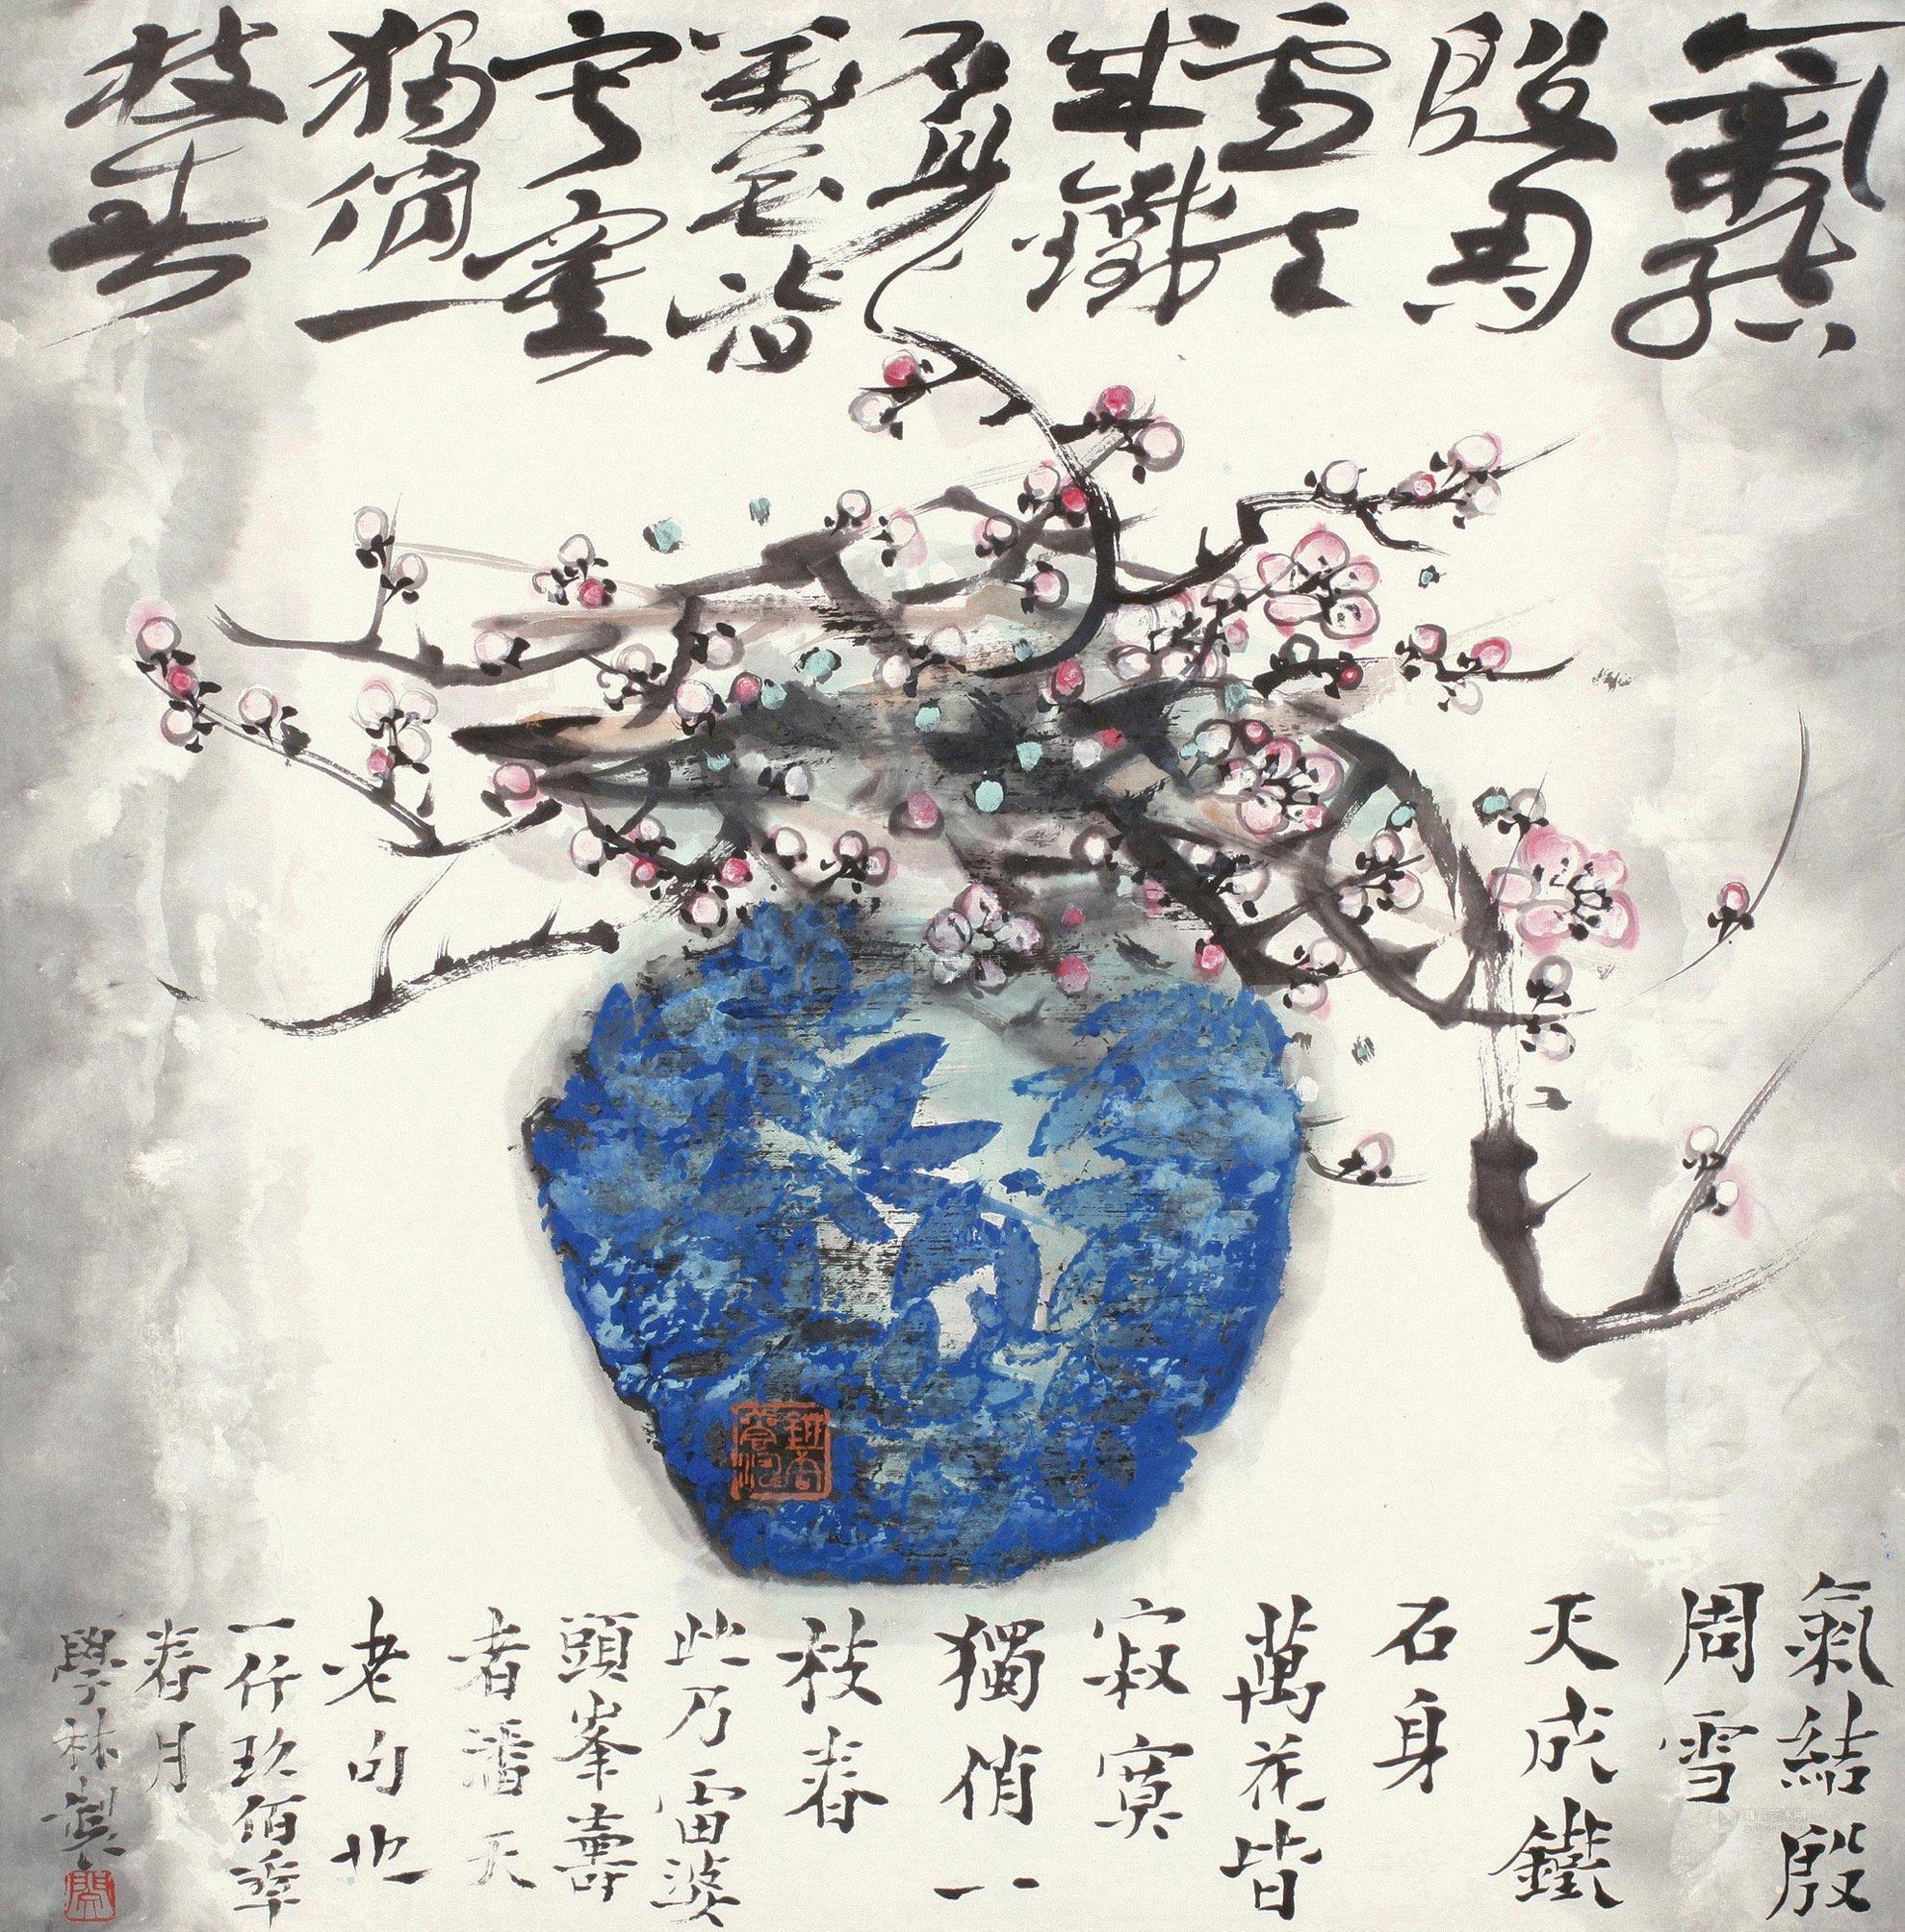 氣結
殷周
雪天
成鐵
石身
萬花皆
寂寞
獨俏一
枝春
氣結殷
周雪
天成鐵
石身
萬花皆
寂寞
獨俏一
枝春
此乃雷婆
頭峯壽
者潘天
老句也
一仟玖佰秊
春月
學林製